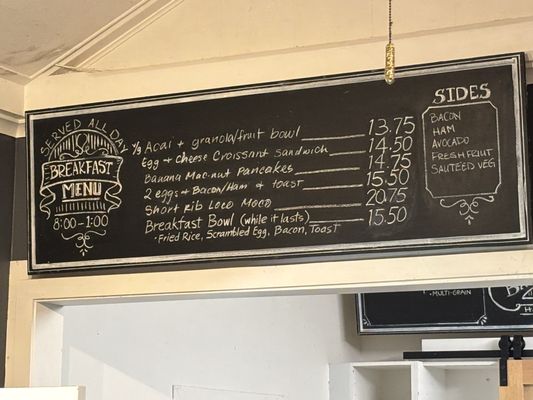 SERVED ALL DAY
BREAKFAST
MENU
8:00-1:00
Acai + granola/fruit bowl 13.75
Egg + Cheese Croissant Sandwich 14.50
Banana Mac-nut Pancakes 14.75
2 eggs + Bacon/Ham + toast 15.50
Short Rib Loco Moco 20.75
Breakfast Bowl (while it lasts) 15.50
• Fried Rice, Scrambled Egg, Bacon, Toast
SIDES
BACON
HAM
AVOCADO
FRESH FRUIT
SAUTEED VEG
- MULTI-GRAIN